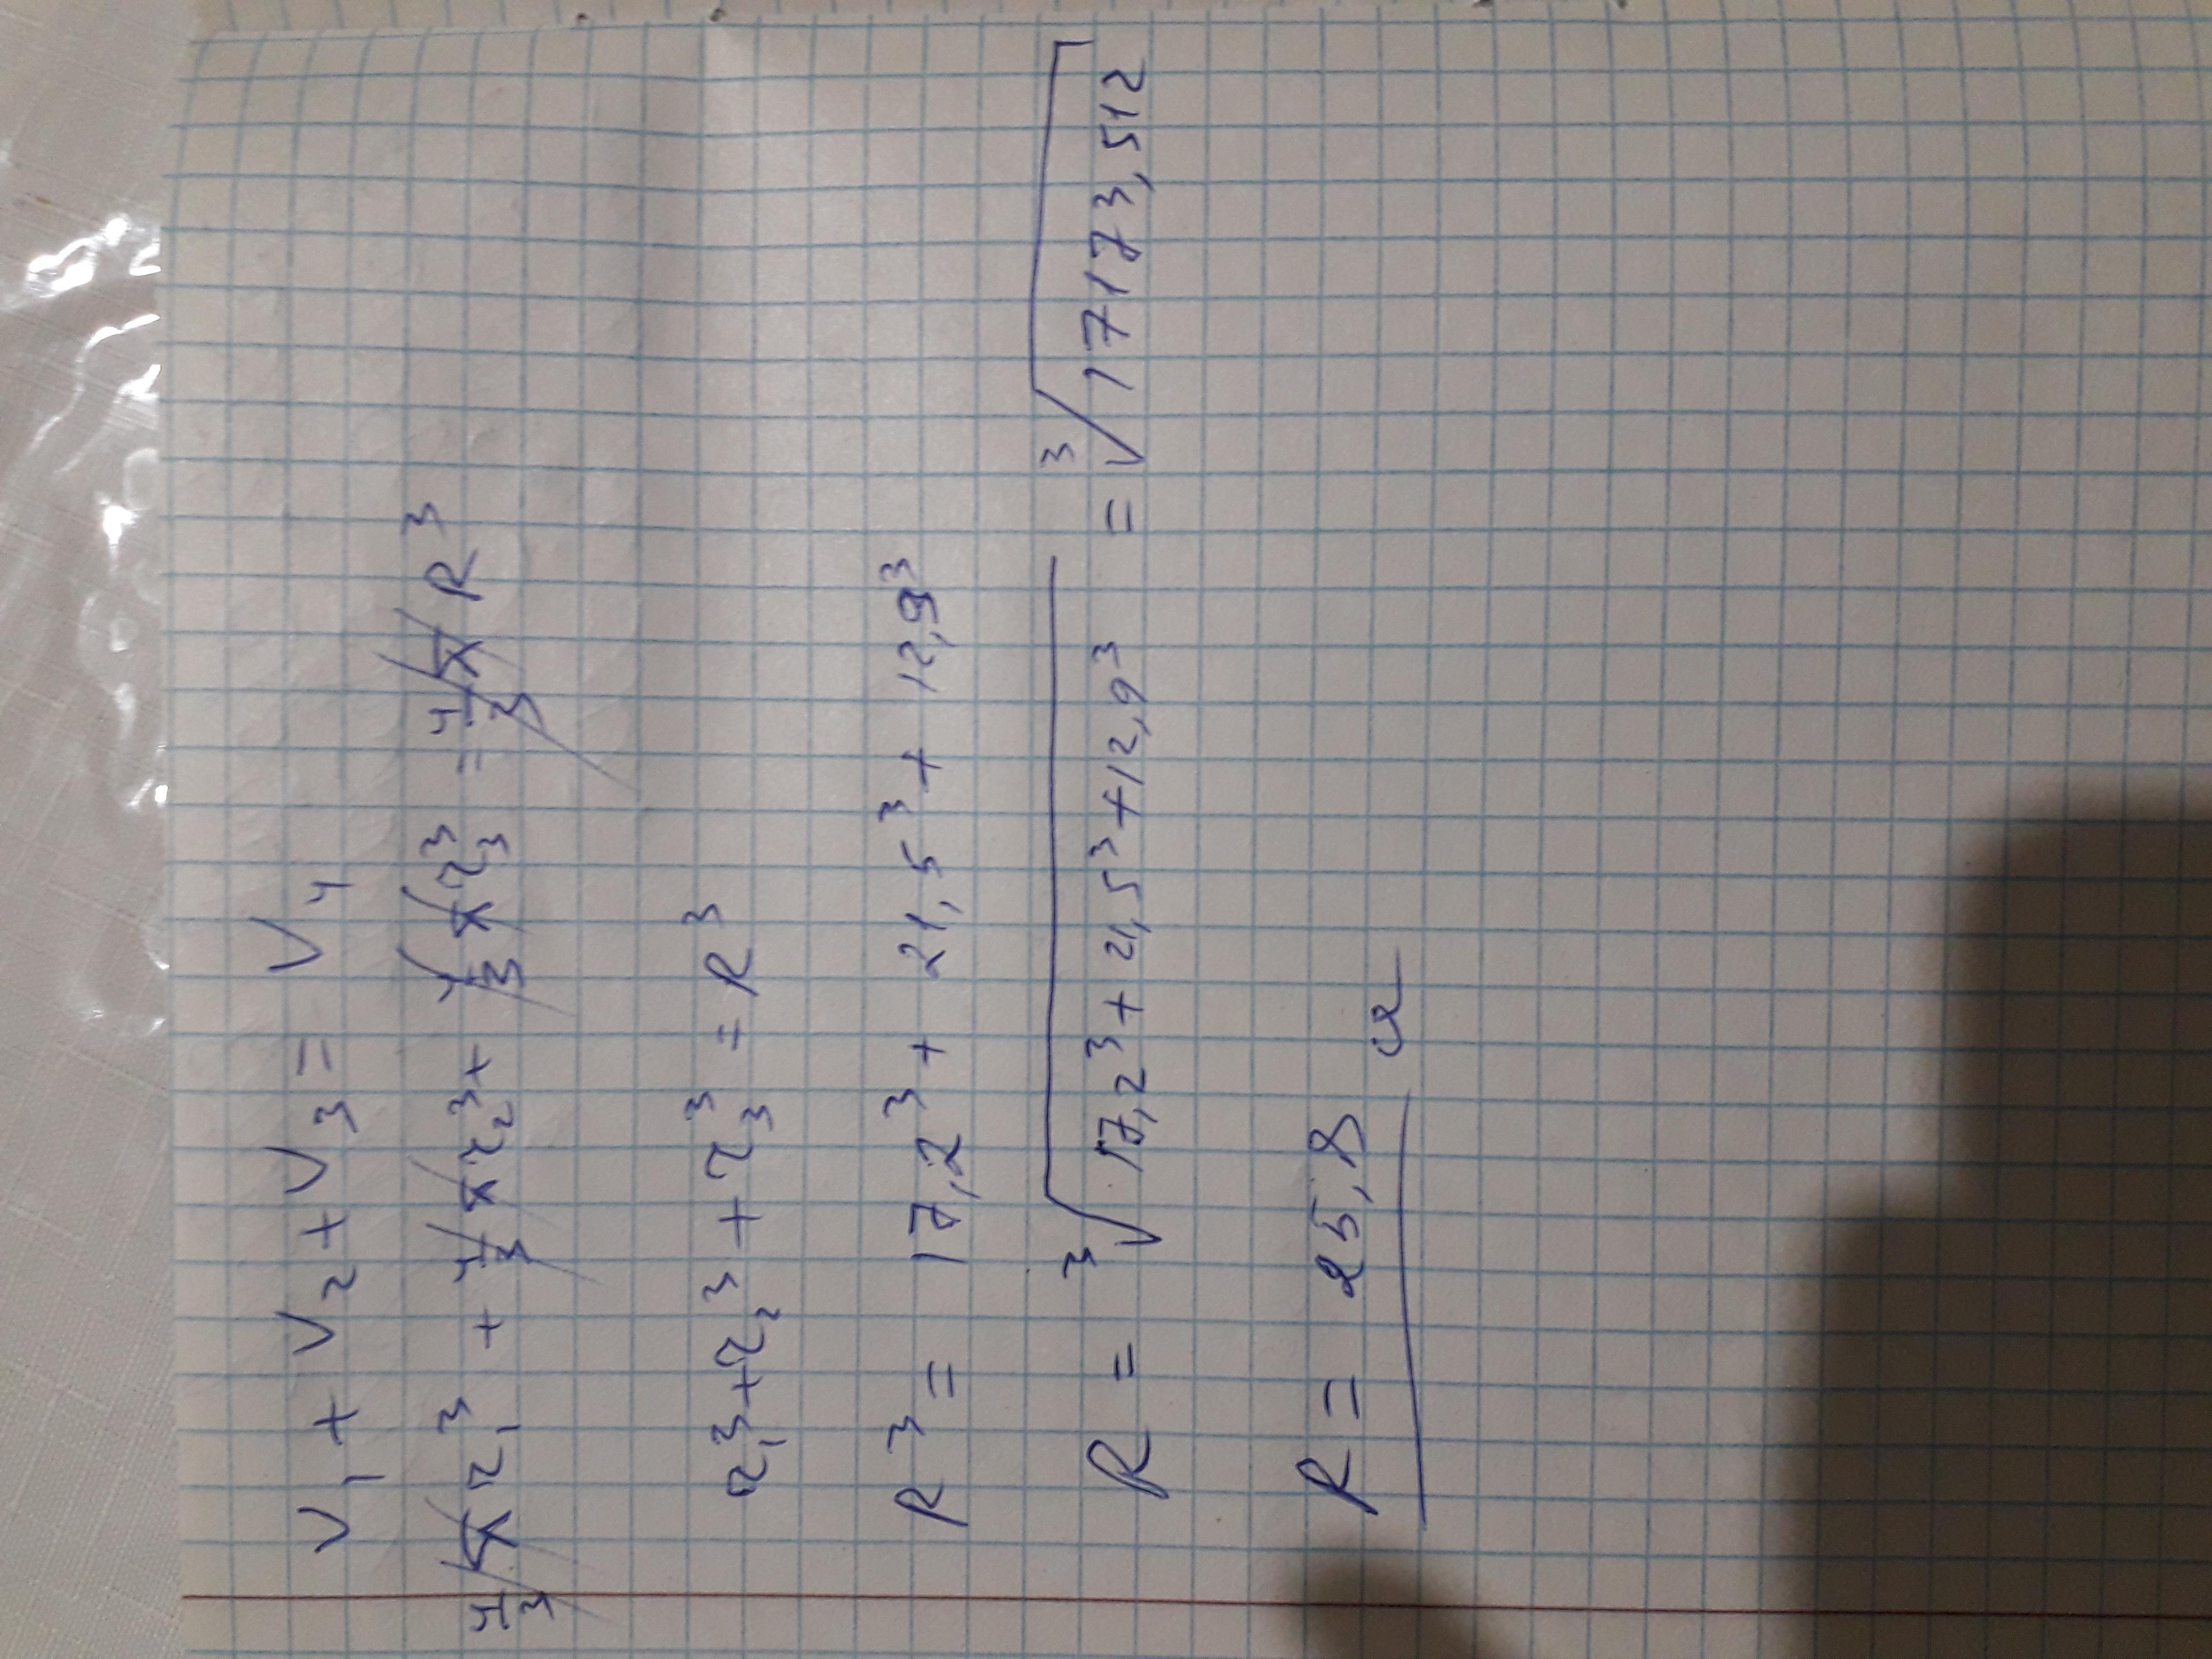 V₁ + V₂ + V₃ = V₄
4/3 π r₁³ + 4/3 π r₂³ + 4/3 π r₃³ = 4/3 π R³
r₁³ + r₂³ + r₃³ = R³
R³ = 17,2³ + 21,5³ + 12,9³
R = ³√17,2³ + 21,5³ + 12,9³ = ³√17173,512
R = 25,8